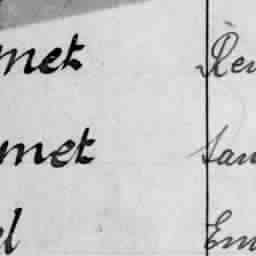 met Ren
met San
el Em